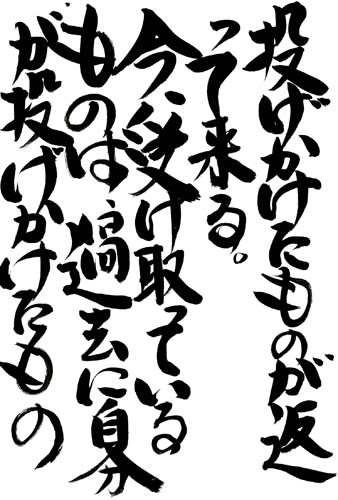 投げかけたものが返
って来る。
今、受け取っている
ものは、過去に自分
が投げかけたもの